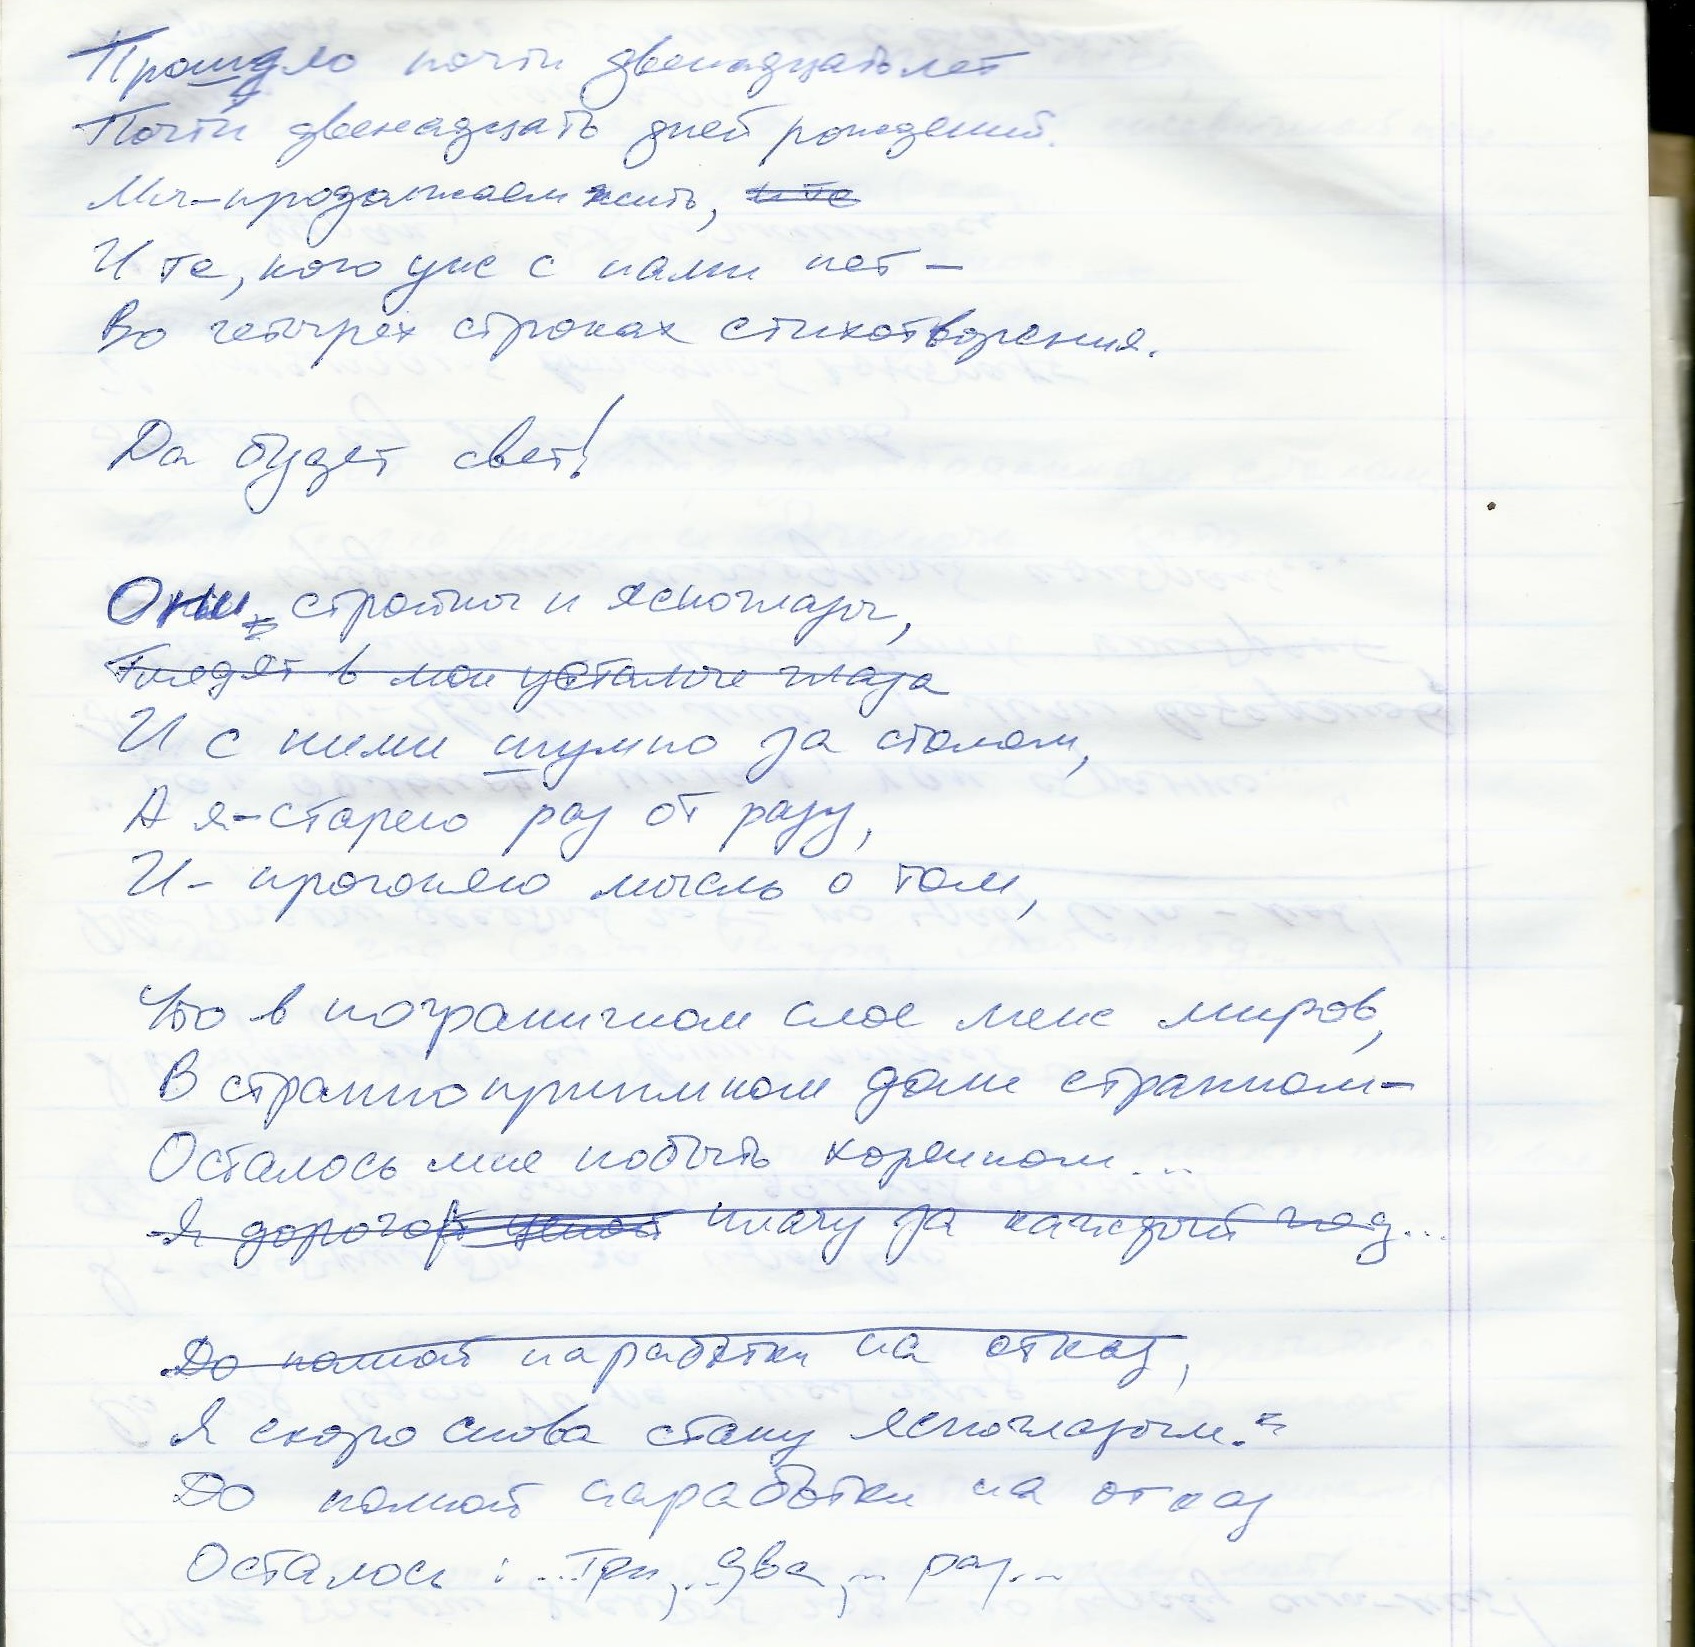 Прошло почти двенадцать лет
Почти двенадцать дней рождений.
Мы-продолжаем жить, и те
И те, кого уже с нами нет –
Во четырех строках стихотворения.
Да будет свет!
Они, стройны и ясноглазы,
Глядят в мои усталые глаза
И с ними шумно за столом,
А я-старею раз от разу,
И - прогоняю мысль о том,
Что в пограничном слое меж миров,
В странноприимном доме странном–
Осталось мне побыть
Я дорогой ценой плачу за каждый год...
До полной наработки на отказ,
Я скоро снова стану ясноглазым.
До полной наработки на отказ
Осталось : ...Три,...два,... раз...